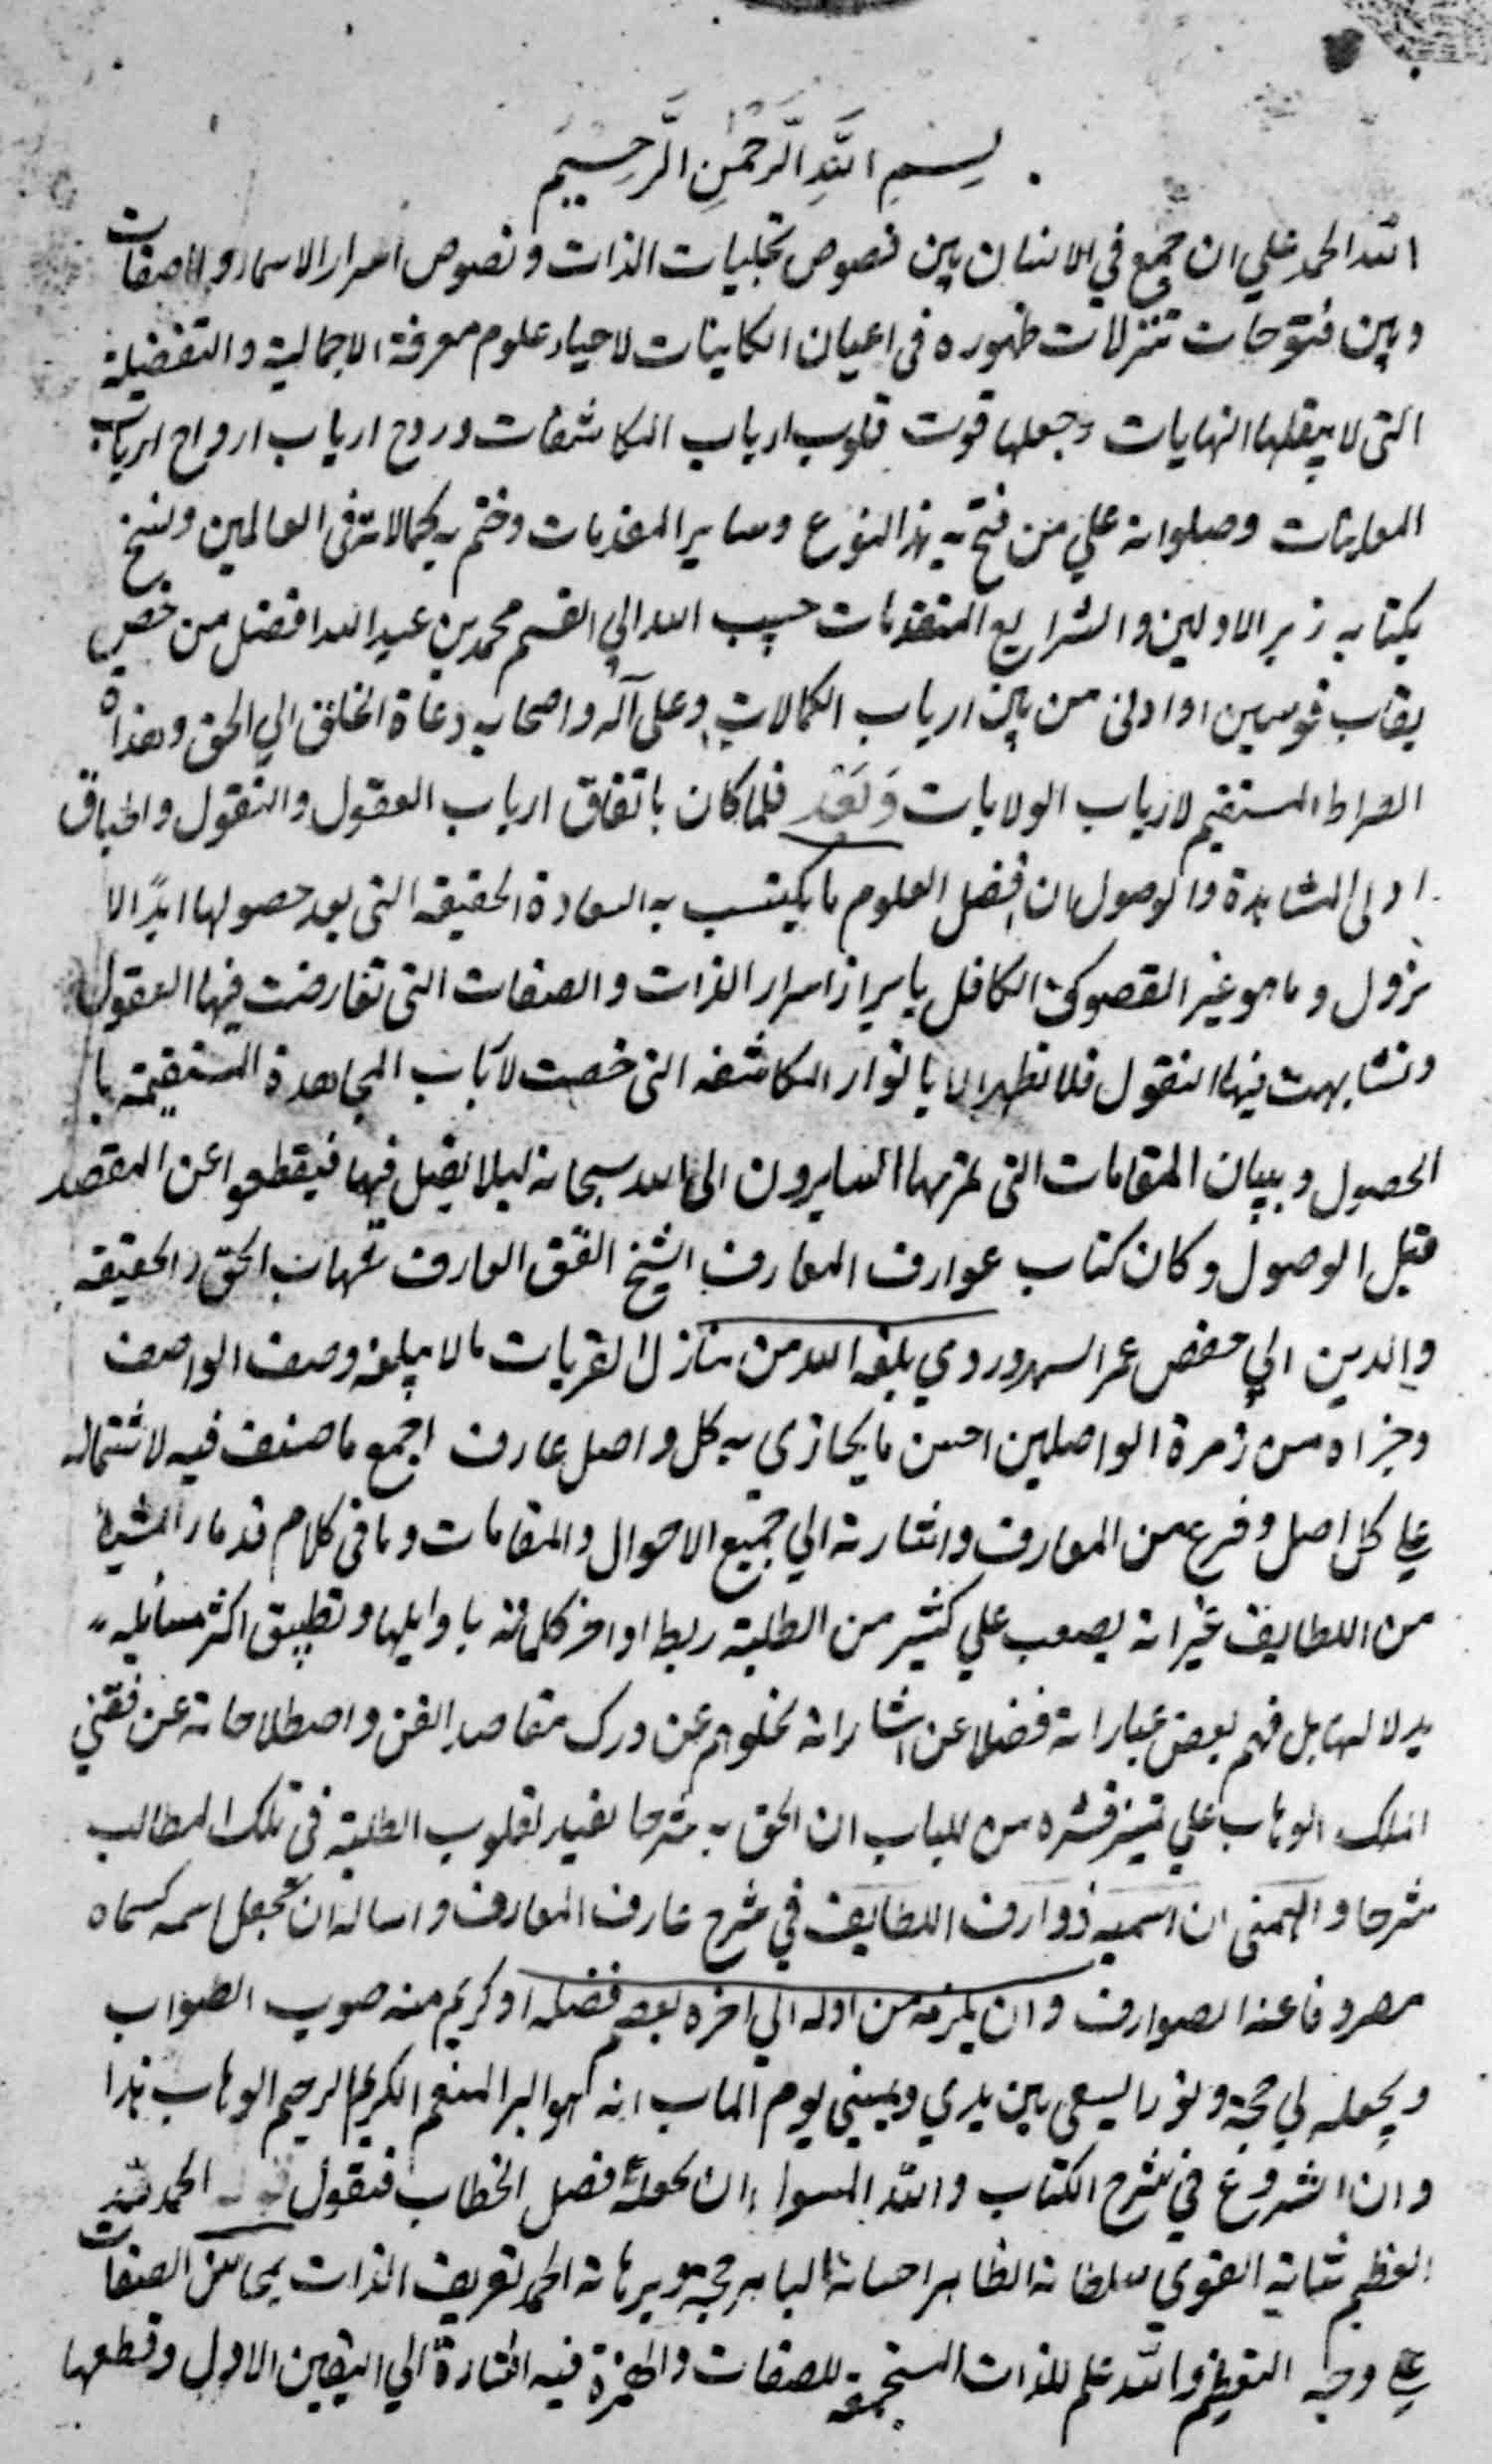 بسم الله الرحمن الرحيم
الله الحمد علي ان جمع في الانسان بين فصوص تجليات الذات ونصوص اسرار الاسماء والصفات
وبين فتوحات تنزلات ظهوره في اعيان الكاينات لاحياء علوم معرفة الاجمالية والتفضيلية
التي لا يبقلها النهايات وجعلها قوت قلوب ارباب المكاشفات وروح ارباب ارواح ارباب
المعاينات وصلواته علي من فتح به هذا النوع وساير المقدمات وختم به كمالاته في العالمين ونسخ
بكتابه زبر الاولين والشرايع المتقدمات حبيب الله ابي القسم محمد بن عبد الله افضل من خص
بقاب قوسين او ادنى من بين ارباب الكمالات وعلى آله واصحابه دعاة الخلق الي الحق وهداة
الصراط المستقيم لارباب الولايات وبعد فلما كان باتفاق ارباب العقول والنقول واطباق
اولى المشاهدة والوصول ان افضل العلوم ما يكتسب به السعادة الحقيقه التي بعد حصولها ابدًا لا
يزول وما هو غير القصوى الكافل بابراز اسرار الذات والصفات التي تعارضت فيها العقول
وتشابهت فيها النقول فلا تظهر الا بانوار المكاشفه التي خصت لارباب المجاهدة المستقيمة با
الحصول وببيان المقامات التي يمر بها السايرون الى الله سبحانه ليلا يضل فيها فيقطعوا عن المقصد
قبل الوصول وكان كتاب عوارف المعارف الشيخ العارف شهاب الحق والحقيقه
والدين ابي حفص عمر السهروردي بلغه الله من منازل القربات ما لا يبلغه وصف الواصف
وجزاه من زمرة الواصلين احسن ما يجازي به كل واصل عارف اجمع ما صنف فيه لاشتماله
علي كل اصل وفرع من المعارف واشارته الي جميع الاحوال والمقامات وما في كلام قدماء المشايخ
من اللطايف غير انه يصعب علي كثير من الطلبة ربط اواخر كلماته باوايلها وتطبيق اكثر مسايله
بدلالها بل فهم بعض عباراته فضلا عن اشاراته لخلوهم عن درك مقاصد الفن واصطلاحاته عن فقني
الملك الوهاب علي تميز قشره من اللباب ان الحق به شرحا يفيد لقلوب الطلبة في تلك المطالب
شرحا والهمني ان اسميه ذوارف اللطايف في شرح عارف المعارف واساله ان يجعل اسمه كسماه
مصروفا عنه الصوارف وان يلزمه من اوله الي اخره بعميم فضله او كريم منه صوب الصواب
ويجعله لي حجة ونورا يسعى بين يدي ويميني يوم الماب انه هو البر المنعم الكريم الرحيم الوهاب هذا
وان الشروع في شرح الكتاب والله المسول ان يجعله فصل الخطاب فنقول الحمد لله
العظيم شانه القوي سلطانه الظاهر احسانه الباهر حجته وبرهانه الحمد تعريف الذات بمحاسن الصفات
علي وجه التعظيم والله علم للذات المستجمعة للصفات والهمزة فيه اشارة الي التعين الاول وقطعها